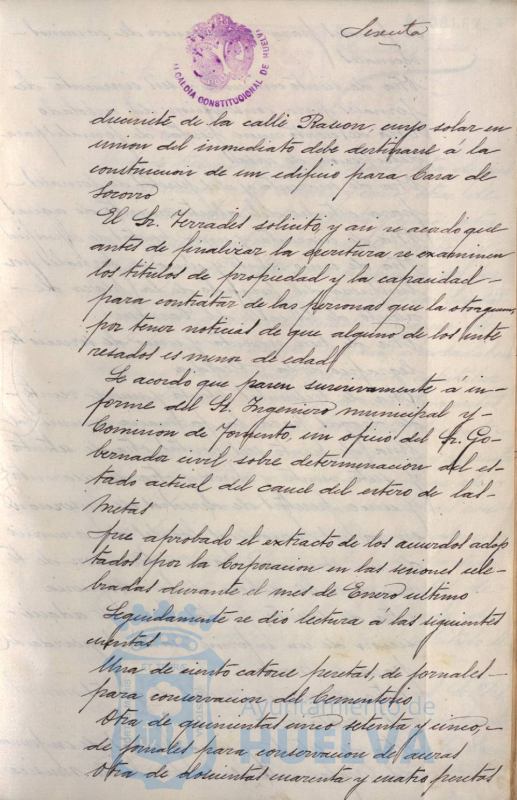 Sesenta
ALCALDIA CONSTITUCIONAL DE HUELVA
diecisiete de la calle Rascon, cuyo solar en
union del inmediato debe destinarse á la
construccion de un edificio para Casa de
Socorro
El Sr. Terrades solicitó, y asi se acordó que
antes de finalizar la escritura se examinen
los titulos de propiedad y la capacidad
para contratar de las personas que la otorguen,
por tener noticias de que alguno de los inte
resados es menor de edad
Se acordó que pasen sucesivamente á in-
forme del Sr. Ingeniero municipal y
Comision de Fomento, un oficio del Sr. Go-
bernador civil sobre determinacion del es-
tado actual del cauce del estero de las
Metas
Fue aprobado el extracto de los acuerdos adop
tados por la Corporacion en las sesiones cele-
bradas durante el mes de Enero ultimo
Seguidamente se dió lectura á las siguientes
cuentas
Una de ciento catorce pesetas, de jornales
para conservacion del Cementerio
Otra de quinientas cinco, setenta y cinco,
de jornales para conservacion de aceras
Otra de doscientas cuarenta y cuatro pesetas
Ayuntamiento de
HUELVA